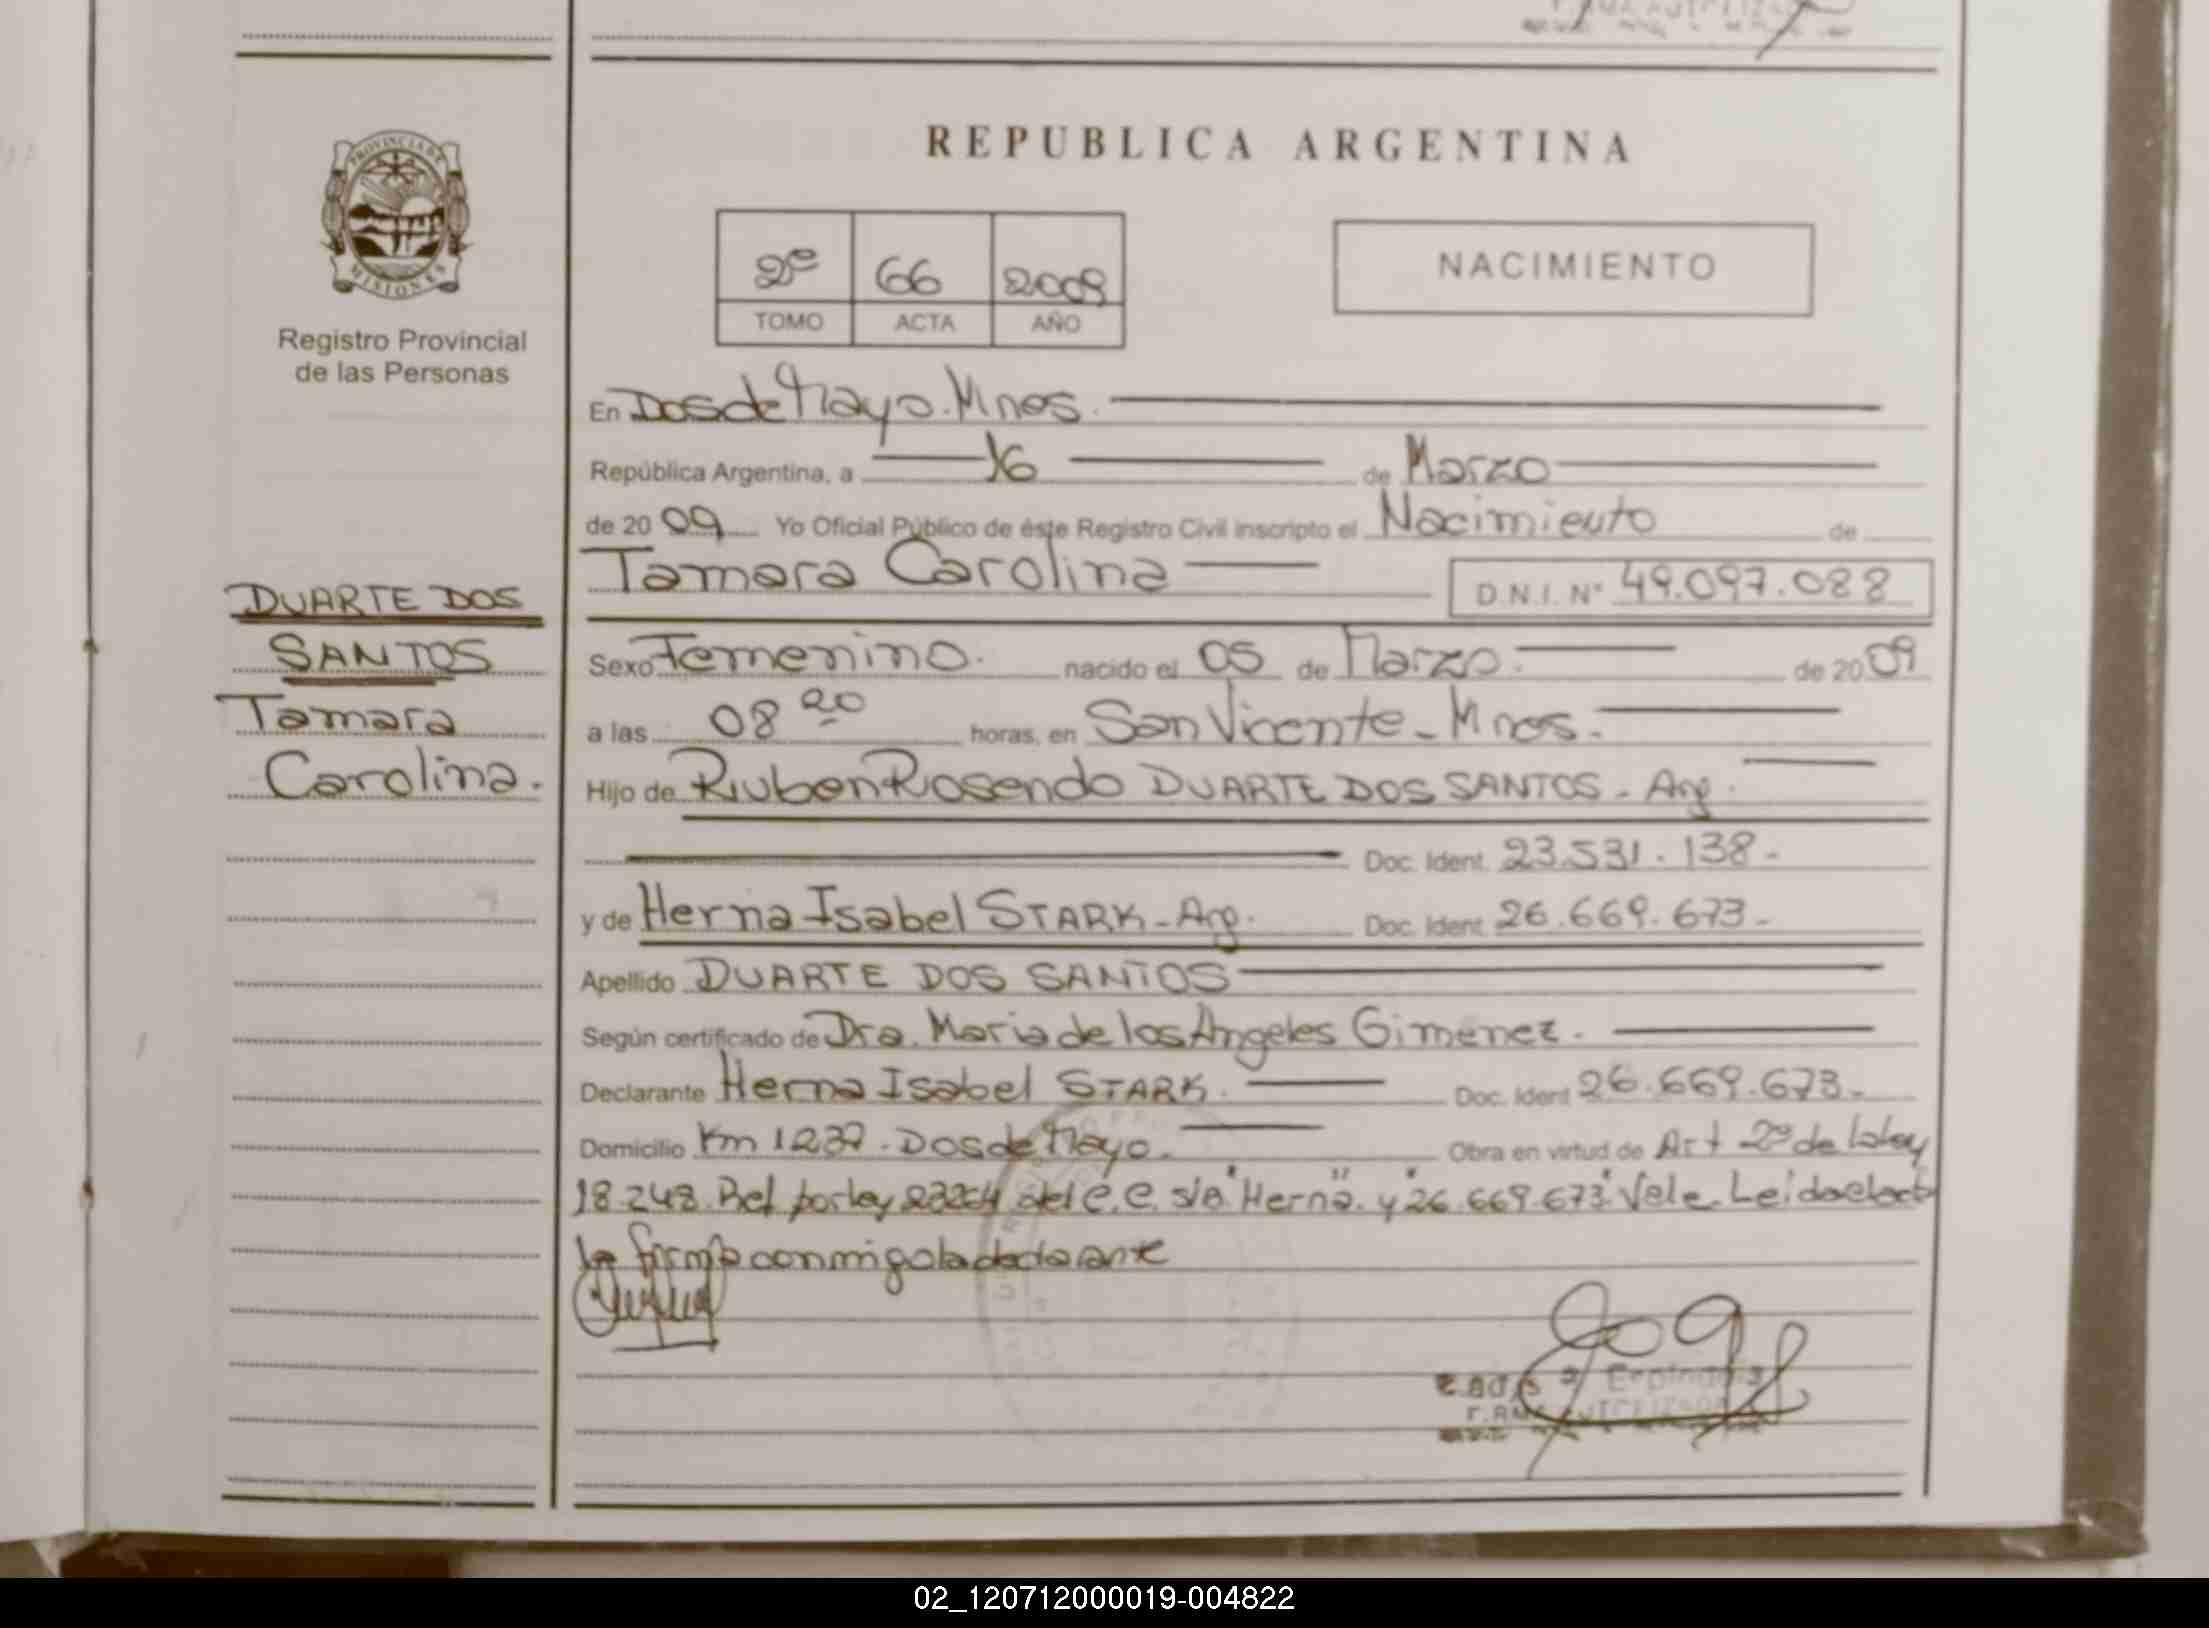 REPUBLICA ARGENTINA
PROVINCIA DE
MISIONES
Registro Provincial
de las Personas
2º 66 2009
TOMO ACTA AÑO
NACIMIENTO
En Dos de Mayo. Mnes.
República Argentina, a 16 de Marzo
de 20 09 Yo Oficial Público de éste Registro Civil inscripto el Nacimiento de
Tamara Carolina D.N.I. Nº 49.097.088
DUARTE DOS
SANTOS
Tamara
Carolina.
Sexo Femenino. nacido el 05 de Marzo. de 20 09
a las 08 20 horas, en San Vicente - Mnes.
Hijo de Ruben Rosendo DUARTE DOS SANTOS - Arg.
Doc. Ident. 23.531.138-
y de Herna Isabel STARK - Arg. Doc. Ident. 26.669.673-
Apellido DUARTE DOS SANTOS
Según certificado de Dra. Maria de los Angeles Gimenez.
Declarante Herna Isabel STARK. Doc. Ident 26.669.673-
Domicilio Km 1237 - Dos de Mayo. Obra en virtud de Art 2º de la ley
18.248. Ref por ley 23264 del C.C. s/b "Herna" y "26.669.673" Vale. Leida el acta
la firma conmigo la declarante
02_120712000019-004822